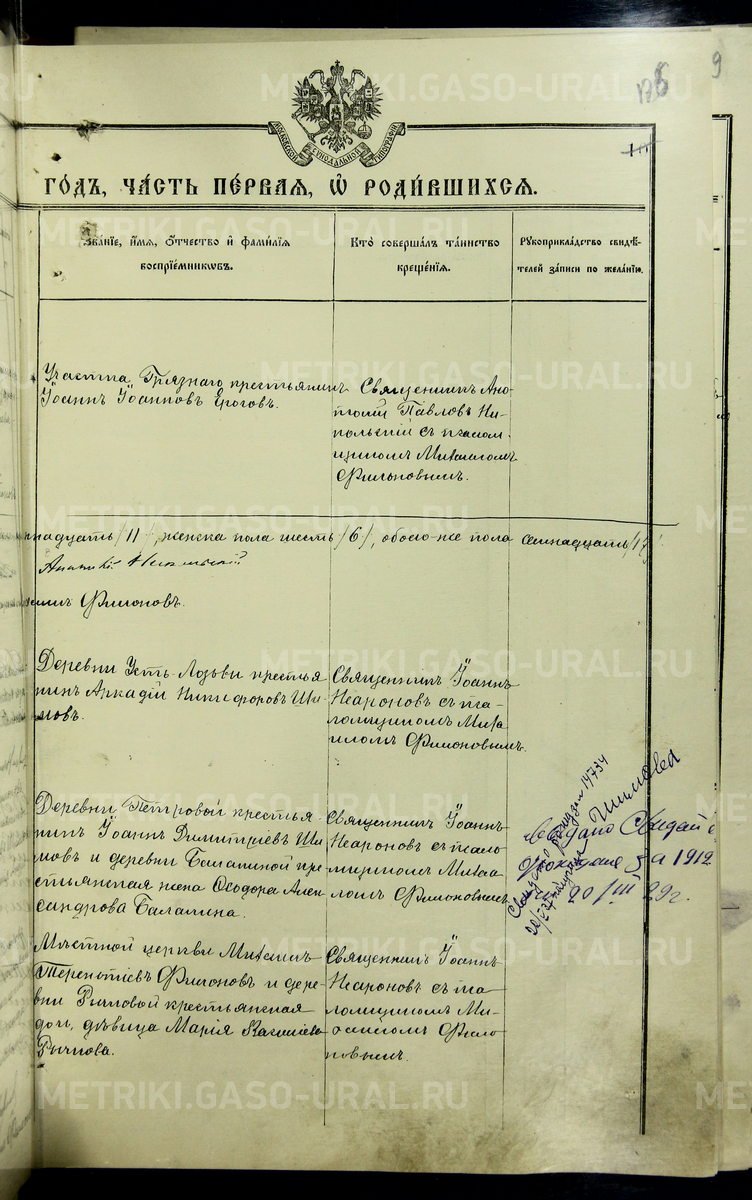 128
9
МОСКОВСКОЙ СѴНОДАЛЬНОЙ ТИПОГРАФІИ
го́дъ, ча́сть пе́рвая, ѡ҆ роди́вшихся.
Зва́нїе, и҆́мя, ѻ҆́тчество и҆ фами́лїя
воспрїе́мникѡвъ.
Кто̀ соверша́лъ та́инство
креще́нїя.
Рꙋкоприкла́дство свидѣ́-
телей за́писи по жела́нїю.
Участка Грязнаго крестьянинъ
Іоаннъ Іоанновъ Ероговъ.
Священникъ Ана-
толій Павловъ Ни-
кольскій съ псалом-
щикомъ Михаиломъ
Филоновымъ.
надцать /11/, женска пола шесть /6/, обоего-же пола семнадцать /17/.
Анатолій Никольскій
Филоновъ.
Деревни Усть-Лозьвы крестья-
нинъ Аркадій Никифоровъ Ши-
мовъ.
Священникъ Іоаннъ
Неароновъ съ пса-
ломщикомъ Миха
иломъ Филоновымъ.
Деревни Петровой крестья-
нинъ Іоаннъ Димитріевъ Ши
мовъ и деревни Балакиной кре-
стьянская жена Ѳеодора Алек-
сандрова Балакина.
Священникъ Іоаннъ
Неароновъ съ псало
мщикомъ Миха
ломъ Филоновымъ.
дано
за 1912
20/III 29 г.
14734
Мѣстной церкви Михаилъ
Терентіевъ Филоновъ и дере-
вни Рычковой крестьянская
дочь, дѣвица Марія
Рычкова.
Священникъ Іоаннъ
Неароновъ съ пса
ломщикомъ Ми-
хаиломъ Фило
новымъ.
METRIKI.GASO-URAL.RU